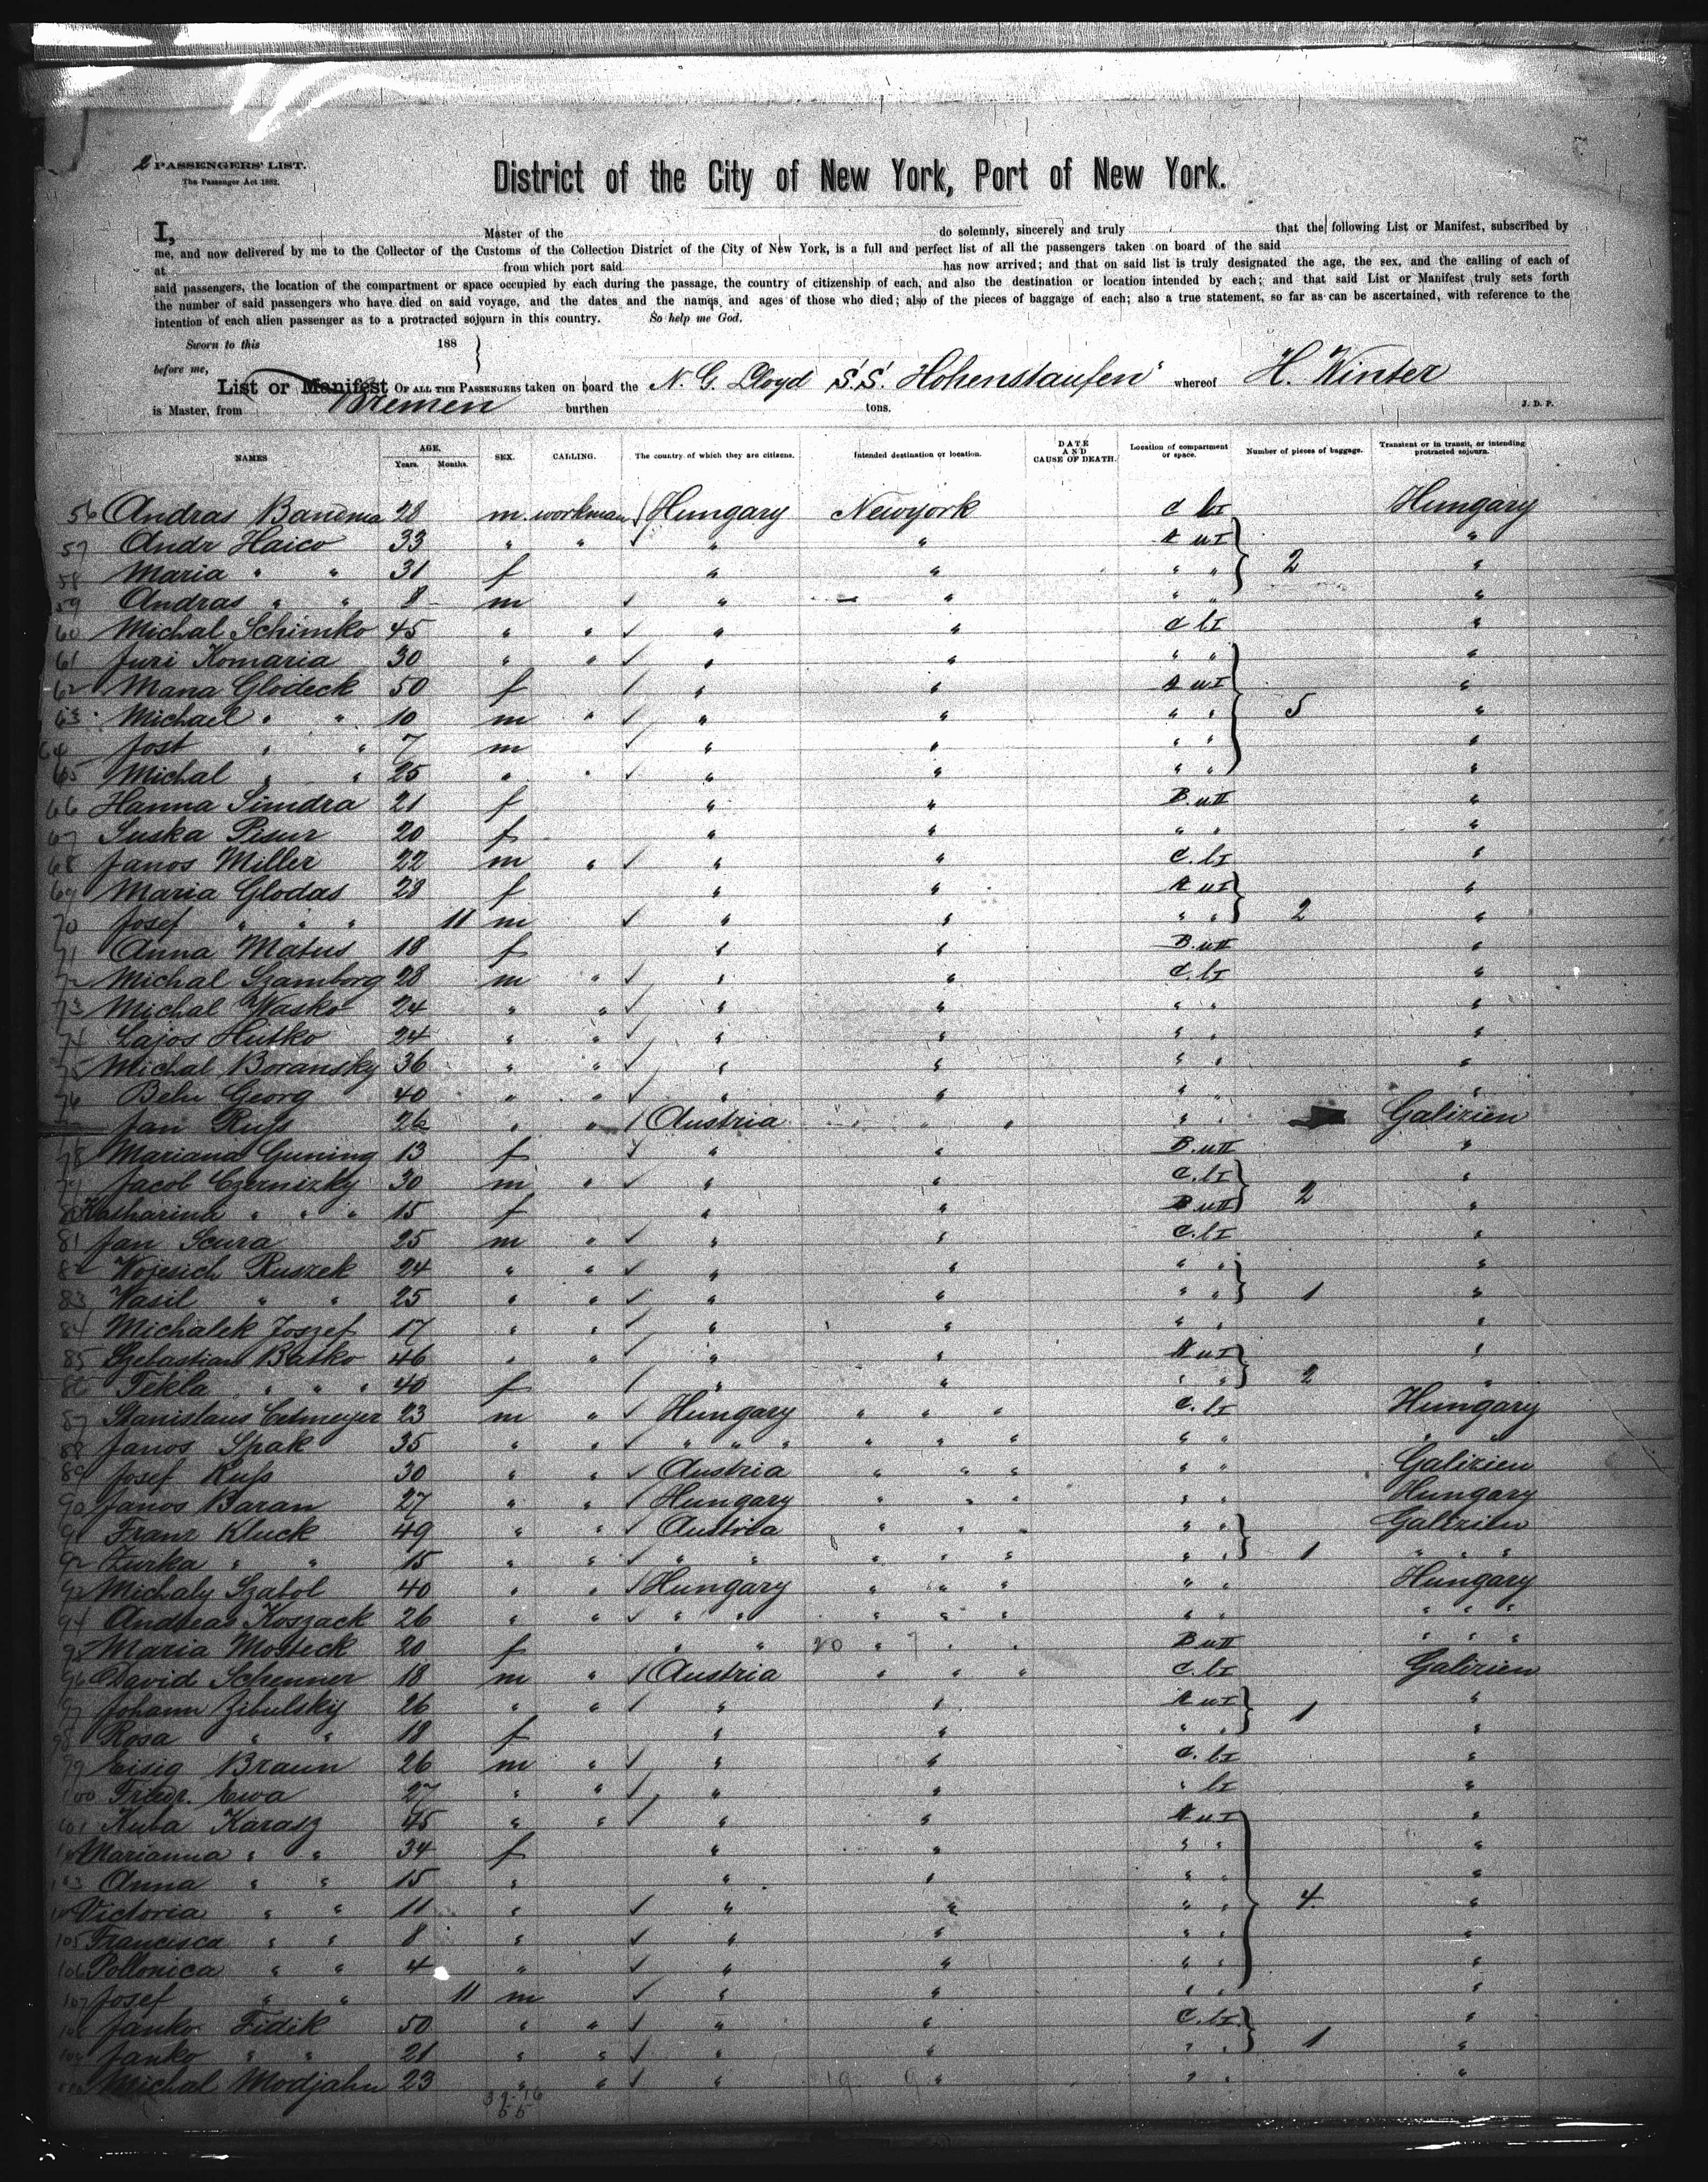 2 PASSENGERS' LIST.
The Passenger Act 1882.
District of the City of New York, Port of New York.
I, Master of the do solemnly, sincerely and truly that the following List or Manifest, subscribed by
me, and now delivered by me to the Collector of the Customs of the Collection District of the City of New York, is a full and perfect list of all the passengers taken on board of the said
at from which port said has now arrived; and that on said list is truly designated the age, the sex, and the calling of each of
said passengers, the location of the compartment or space occupied by each during the passage, the country of citizenship of each, and also the destination or location intended by each; and that said List or Manifest truly sets forth
the number of said passengers who have died on said voyage, and the dates and the names and ages of those who died; also of the pieces of baggage of each; also a true statement, so far as can be ascertained, with reference to the
intention of each alien passenger as to a protracted sojourn in this country. So help me God.
Sworn to this 188
before me,
List or Manifest OF ALL THE PASSENGERS taken on board the N. G. Lloyd S.S. Hohenstaufen" whereof H. Winter
is Master, from Bremen burthen tons. J. D. P.
NAMES AGE. Years. Months. SEX. CALLING. The country of which they are citizens. Intended destination or location. DATE AND CAUSE OF DEATH. Location of compartment or space. Number of pieces of baggage. Transient or in transit, or intending protracted sojourn.
56 Andras 28 m. workman Hungary Newyork C bI Hungary
57 Andr Haico 33 " " " " A uI "
58 Maria " " 31 f " " " " 2 "
59 Andras " " 8 m " " " " "
60 Michal Schimko 45 " " " " C bI "
61 Juri Komaria 30 " " " " " " "
62 Maria Glodeck 50 f " " A uI "
63 Michael " " 10 m " " " " " 5 "
64 Jost " " 7 m " " " " "
65 Michal " " 25 " " " " " " "
66 Hanna Simdra 21 f " " B uII "
67 Suska Pisur 20 f " " " " "
68 Janos Miller 22 m " " " C. bI "
69 Maria Glodas 28 f " " A uI "
70 Josef " " " 11 m " " " " 2 "
71 Anna Matus 18 f " " B uII "
72 Michal Szamborg 28 m " " " C. bI "
73 Michal Wasko 24 " " " " " " "
74 Lajos Hutko 24 " " " " " " "
75 Michal Boransky 36 " " " " " " "
76 Behr Georg 40 " " " " " " "
Jan Rufs 26 " " Austria " " " " " Galizien
78 Mariana Guning 13 f " " B uII "
79 Jacob Czernizky 30 m " " " C. bI "
80 Katharina " " " 15 f " " B uII 2 "
81 Jan Scura 25 m " " " C. bI "
82 Wojesich Ruszek 24 " " " " " " "
83 Wasil " " 25 " " " " " " 1 "
84 Michalek Joszef 17 " " " " " " "
85 Szebastian Batko 46 " " " " A uI "
86 Tekla " " " 40 f " " " " 2 "
87 Stanislaus Cetmeyer 23 m " Hungary " " " C. bI Hungary
88 Janos Spak 35 " " " " " " " " " " " "
89 Josef Rufs 30 " " Austria " " " " " Galizien
90 Janos Baran 27 " " Hungary " " " " " Hungary
91 Franz Kluck 49 " " Austria " " " " " Galizien
92 Zurka " " 15 " " " " " " " " " 1 " " "
93 Michaly Szabol 40 " " Hungary " " " " " Hungary
94 Andreas Koszack 26 " " " " " " " " " " " "
95 Maria Mosteck 20 f " " 20 " " " B uII " " "
96 David Schenner 18 m " Austria " " " C. bI Galizien
97 Johann Zibulsky 26 " " " " A uI "
98 Rosa " " 18 f " " " " 1 "
99 Eisig Braun 26 m " " " C. bI "
100 Friedr. Ewa 27 " " " " " bI "
101 Kuba Karasz 45 " " " " A uI "
Marianna " " 34 f " " " " "
103 Anna " " 15 " " " " " "
Victoria " " 11 " " " " " 4. "
105 Francisca " " 8 " " " " " "
106 Pollonica " " 4 " " " " " "
107 Josef " " 11 m " " " " "
108 Janko Fidik 50 " " " " C. bI "
109 Janko " " 21 " " " " " " 1 "
Michal Modjahn 23 " " " 19 9 " " " "
39.16
55